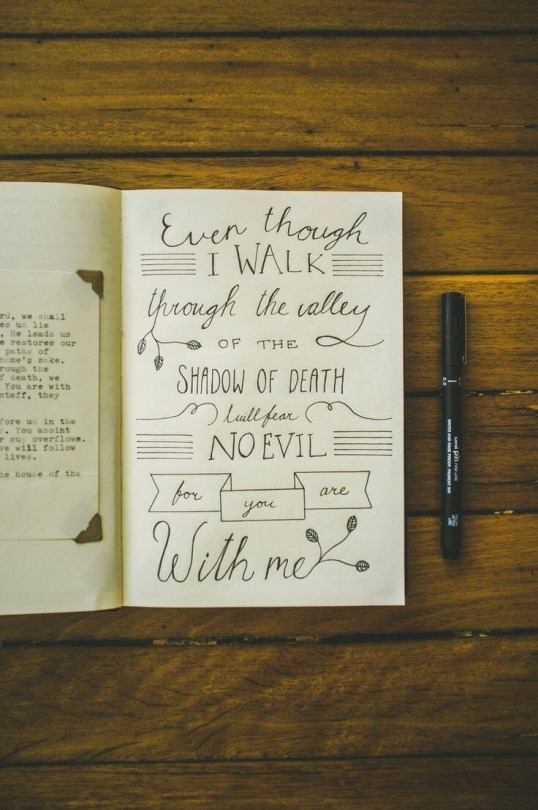 rd, we shall
es us lie
. He leads us
e restores our
paths of
name's sake.
rough the
f death, we
You are with
staff, they
fore us in the
s. You anoint
r cup overflows.
we will follow
lives.
he house of the
Even though
I WALK
through the valley
OF THE
SHADOW OF DEATH
I will fear
NO EVIL
for you are
With me
0.5
uni PIN FINE LINE
WATER AND FADE PROOF PIGMENT INK